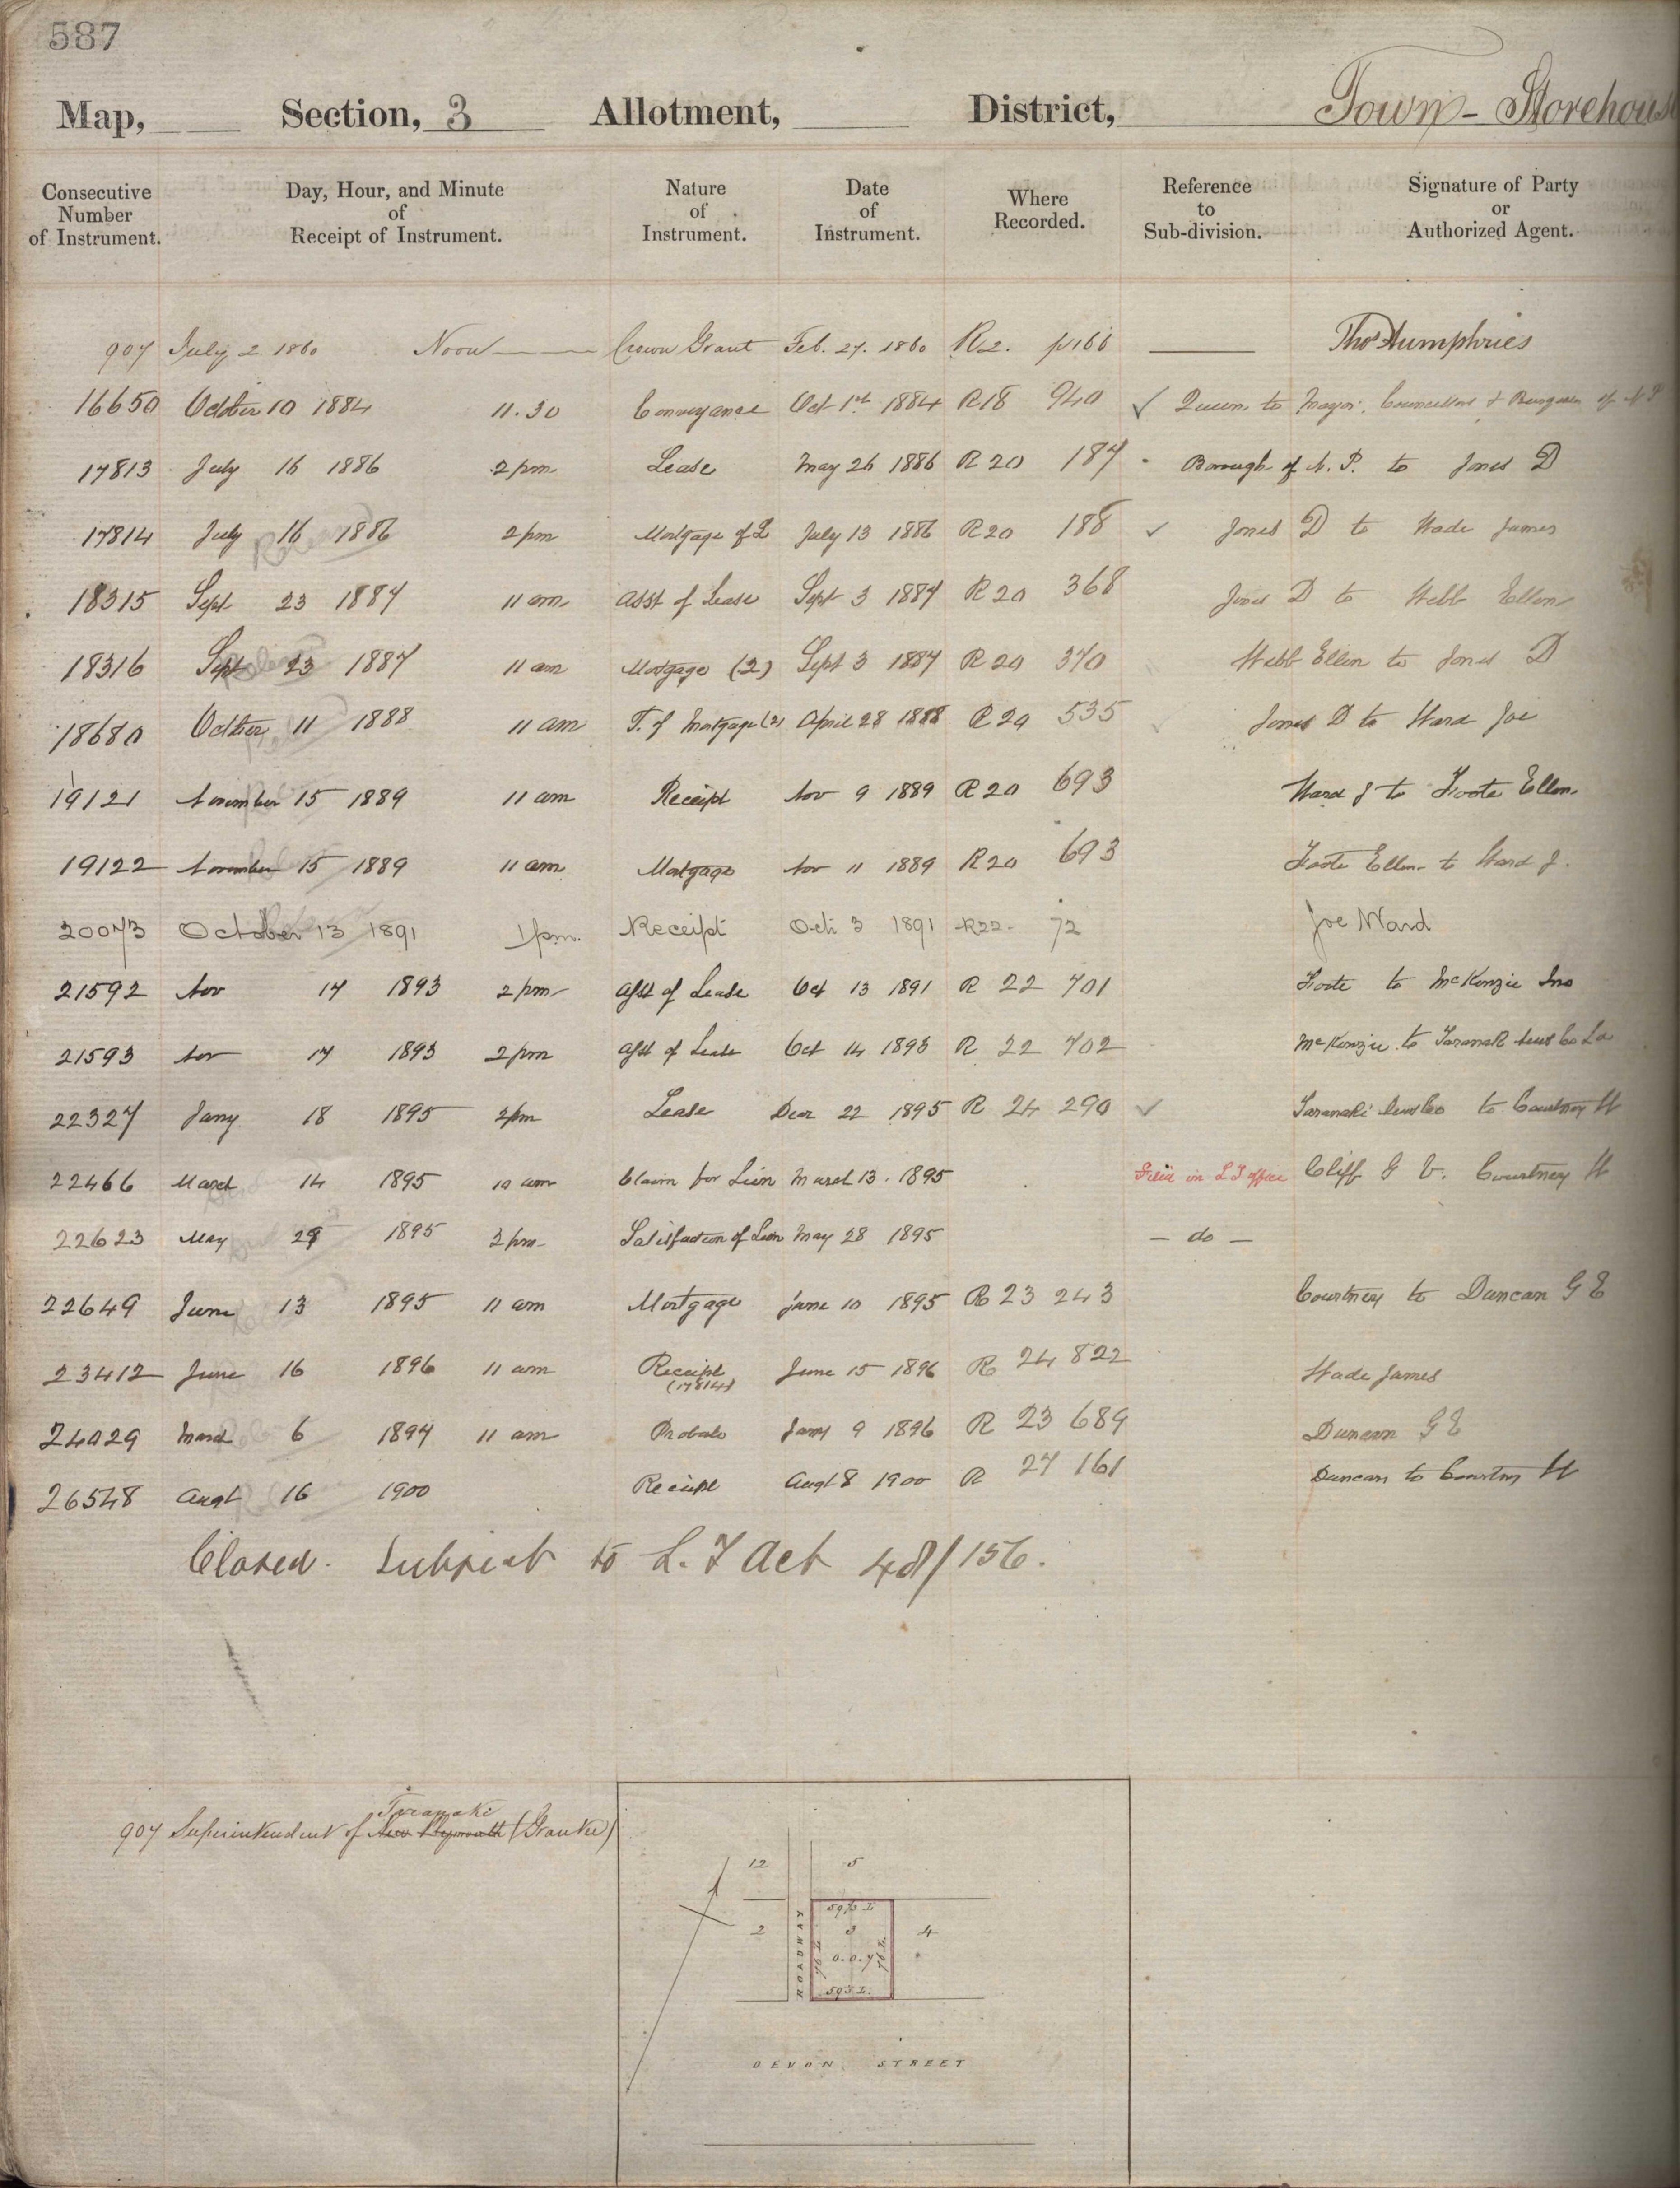 587
Map, Section, 3 Allotment, District, Town - Storehouse
Consecutive Number of Instrument. Day, Hour, and Minute of Receipt of Instrument. Nature of Instrument. Date of Instrument. Where Recorded. Reference to Sub-division. Signature of Party or Authorized Agent.
907 July 2 1860 Noon Crown Grant Feb. 27. 1860 R2. p166 Thos Humphries
16650 October 10 1884 11.30 Conveyance Oct 1st 1884 R18 940 ✓ Queen to Mayor, Councillors & Burgesses of N P
17813 July 16 1886 2 pm Lease May 26 1886 R 20 187 Borough of N. P. to Jones D
17814 July 16 1886 2 pm Mortgage of L July 13 1886 R 20 188 ✓ Jones D to Wade James
18315 Sept 23 1887 11 am Asst of Lease Sept 3 1887 R 20 368 Jones D to Webb Ellen
18316 Sept 23 1887 11 am Mortgage (2) Sept 3 1887 R 20 370 Webb Ellen to Jones D
18680 October 11 1888 11 am T. of Mortgage (2) April 28 1888 R 20 535 Jones D to Ward Joe
19121 November 15 1889 11 am Receipt Nov 9 1889 R 20 693 Ward J to Foote Ellen
19122 November 15 1889 11 am Mortgage Nov 11 1889 R 20 693 Foote Ellen to Ward J.
20073 October 13 1891 1 pm. Receipt Oct 3 1891 R22 72 Joe Ward
21592 Nov 17 1893 2 pm Asst of Lease Oct 13 1891 R 22 701 Foote to McKenzie Jno
21593 Nov 17 1893 2 pm Asst of Lease Oct 14 1893 R 22 702 McKenzie to Taranaki News Co Ld
22327 Jany 18 1895 2 pm Lease Decr 22 1895 R 24 290 ✓ Taranaki News Co to Courtney W
22466 March 14 1895 10 am Claim for Lien March 13. 1895 Filed in L T office Cliff G V. Courtney W
22623 May 29 1895 3 pm Satisfaction of Lien May 28 1895 - do -
22649 June 13 1895 11 am Mortgage June 10 1895 R 23 243 Courtney to Duncan G E
23412 June 16 1896 11 am Receipt (17814) June 15 1896 R 24 822 Wade James
24029 March 6 1897 11 am Probate Jany 9 1896 R 23 689 Duncan G E
26548 Augt 16 1900 Receipt Augt 8 1900 R 27 161 Duncan to Courtney W
Closed. Subject to L. T Act 48/156.
Taranaki
907 Superintendent of New Plymouth (Grantee)
12 5
59½ L
2 3 4
ROADWAY
76 L 0.0.7 76 L
59½ L
DEVON STREET